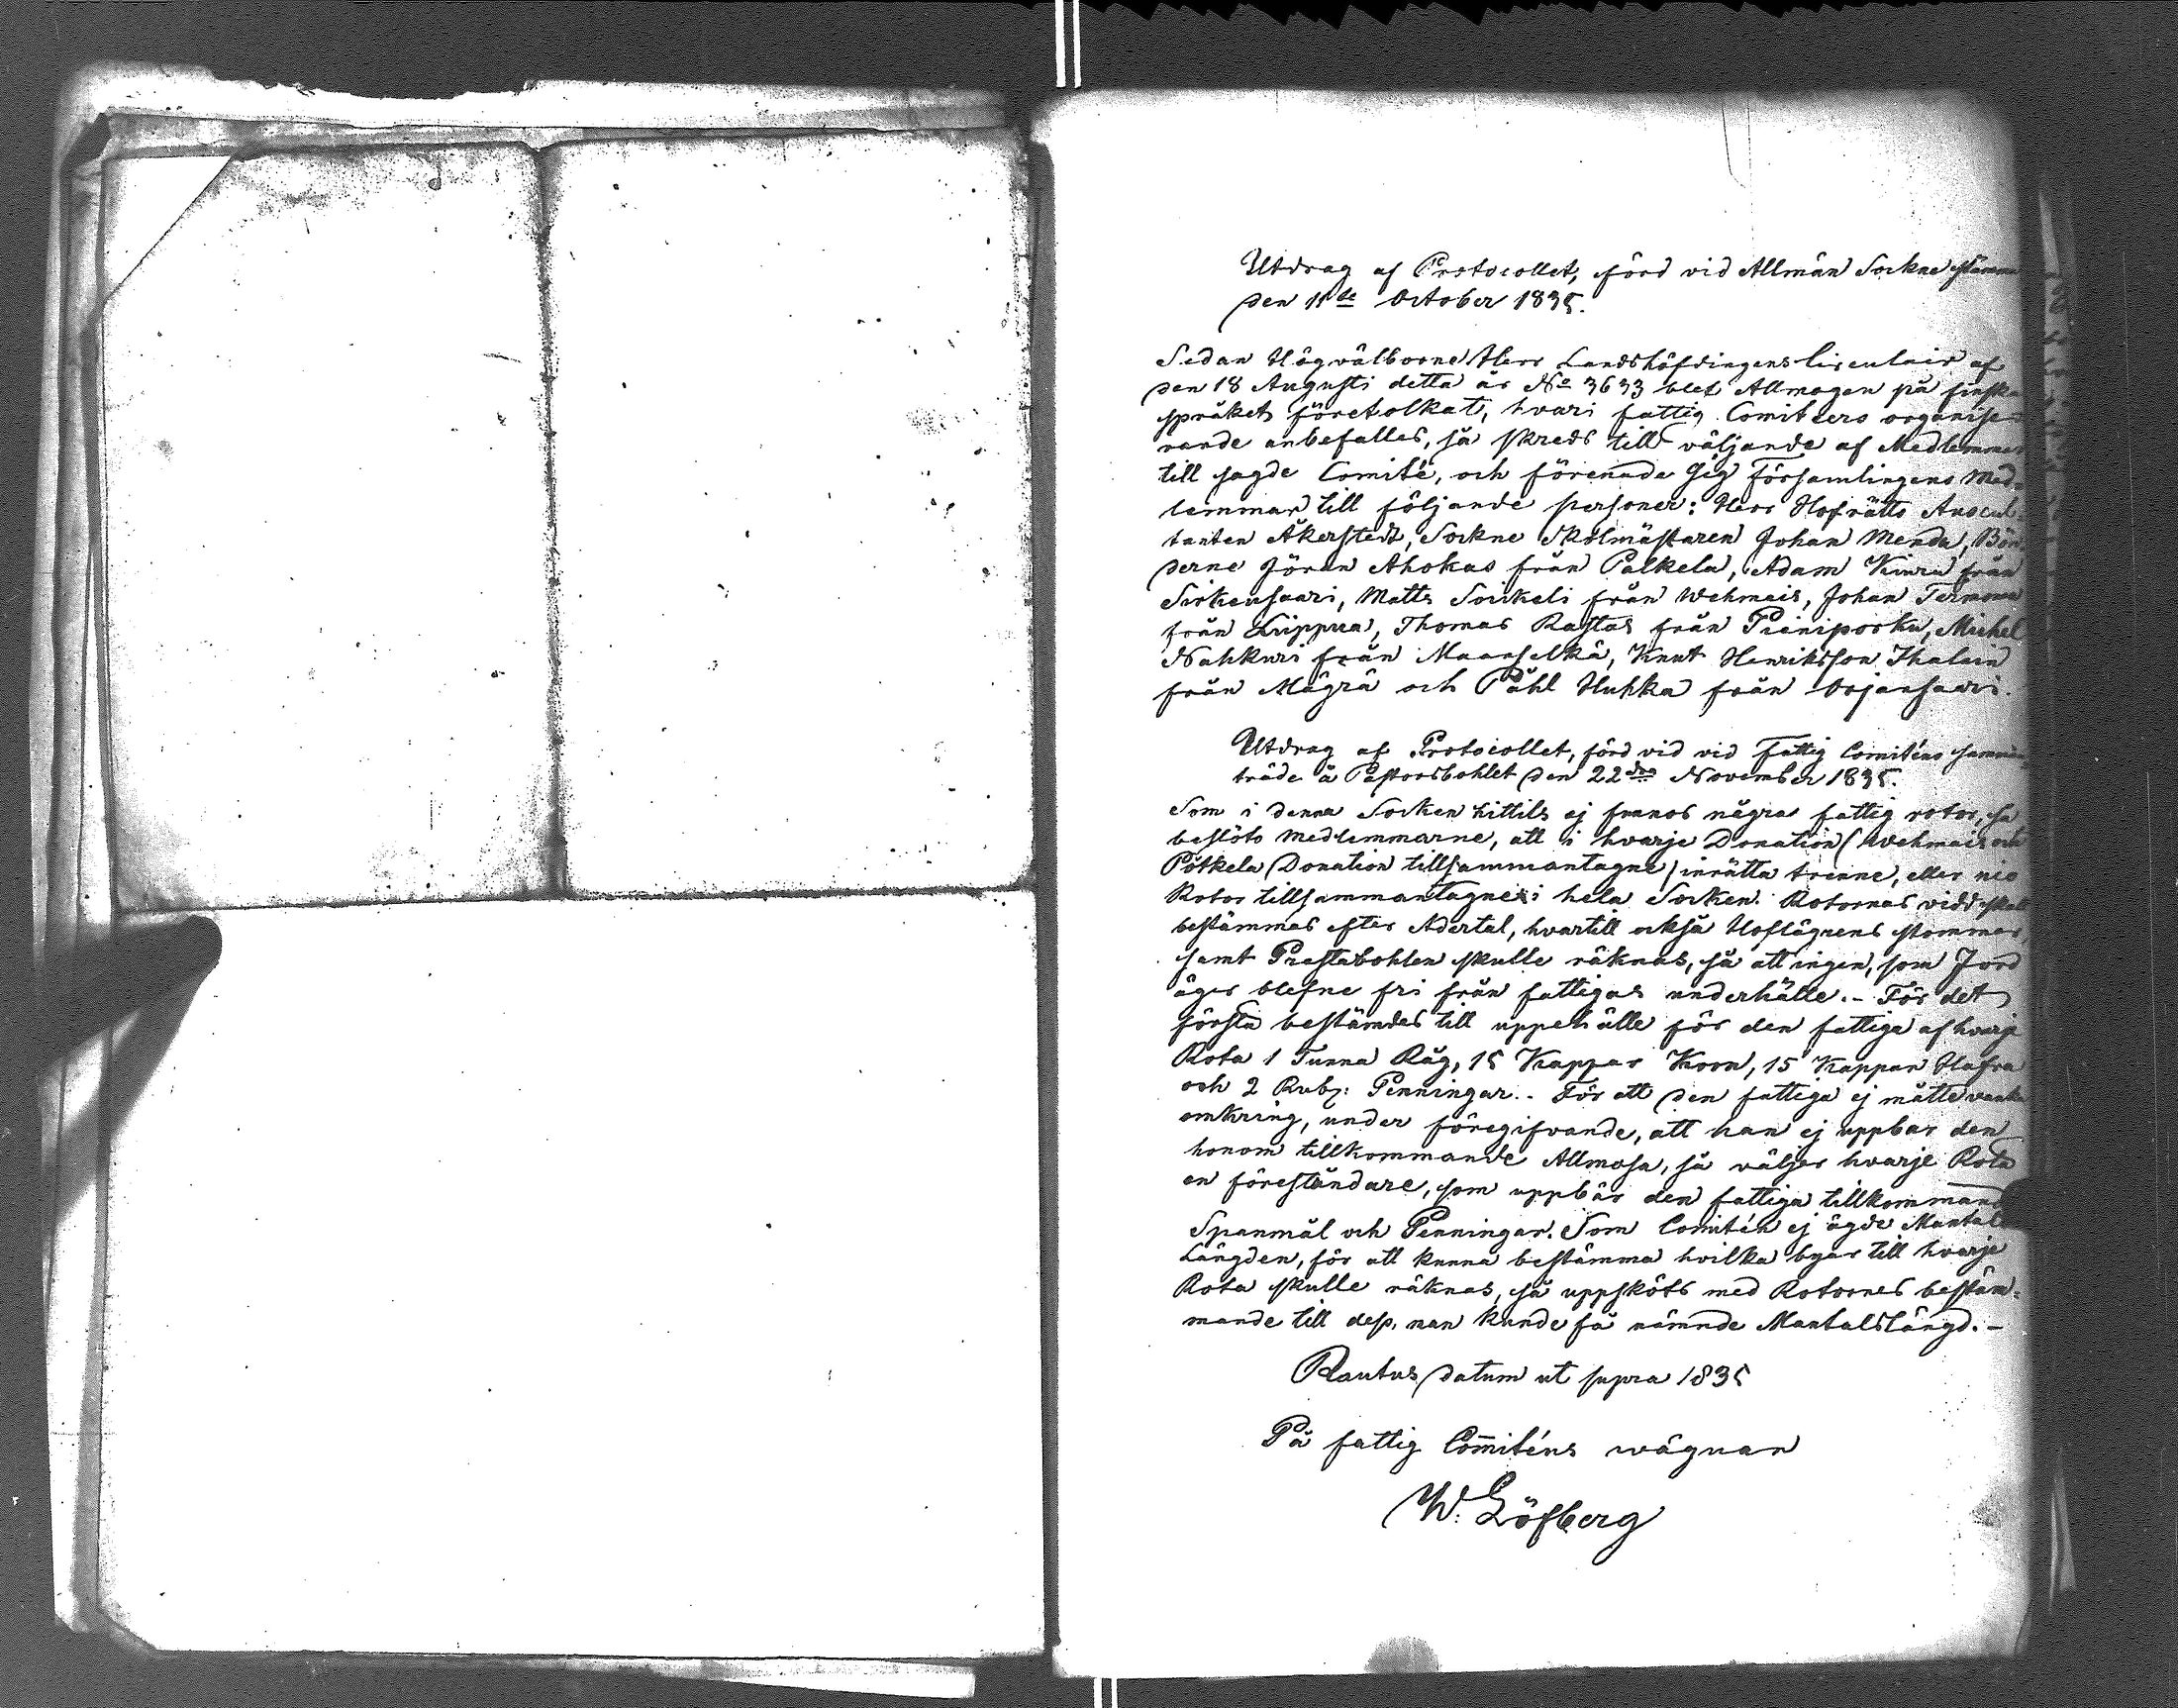 Utdrag af Protocollet, förd vid Allmän Sockne stämma
den 11te October 1835.
Sedan Högvälborne Herr Landshöfdingens Circulair af
den 18 Augusti detta år No 3633 blef Allmogen på finska
språket företolkat, hvari fattig Comitéers organise-
rande anbefalles, så skreds till väljande af Medlemmar
till sagde Comité, och förenade sig Församlingens Med-
lemmar till följande personer: Herr Hofrätts Auscul-
tanten Åkerstedt, Sockne Skolmästaren Johan Menda, Bön-
derne Jöran Ahokas från Palkela, Adam Kiuru från
Sirkensaari, Matts Soikeli från Wehmais, Johan Termonen
från Leippua, Thomas Rastas från Pieniporku, Michel
Nahkuri från Maanselkä, Knut Henriksson Ihalain
från Mägrä och Påhl Huhka från Orjansaari.
Utdrag af Protocollet, förd vid vid Fattig Comiténs samman-
träde å Pastorsbohlet den 22dra November 1835.
Som i denna Socken hittils ej funnos några fattig rotor, så
beslöts medlemmarne, att i hvarje Donation (Wehmais och
Pötkela Donation tillsammantagne) inrätta trenne, eller nio
Rotor tillsammantagne i hela Socken. Rotornas vidd skall
bestämmas efter Adertal, hvartill också Hoflägrens stommar,
samt Prestabohlen skulle räknas, så att ingen, som Jord
äger blefve fri från fattigas underhålle. - För det
första bestämdes till uppehälle för den fattiga af hvarje
Rota 1 Tunna Råg, 15 Kappar Korn, 15 Kappar Hafra
och 2 Rub: Penningar. - För att den fattiga ej måtte vanka
omkring, under föregifvande, att han ej uppbär den
honom tillkommande Allmosa, så väljer hvarje Rota
en föreståndare, som uppbär den fattiga tillkommande
Spanmål och Penningar. Som Comitén ej ägde Mantals
Längden, för att kunna bestämma hvilka byar till hvarje
Rota skulle räknas, så uppsköts med Rotornes bestäm-
mande till dess, man kunde få nämnde Mantalslängd. -
Rautus datum ut supra 1835
På fattig Comiténs wägnar
W. Löfberg